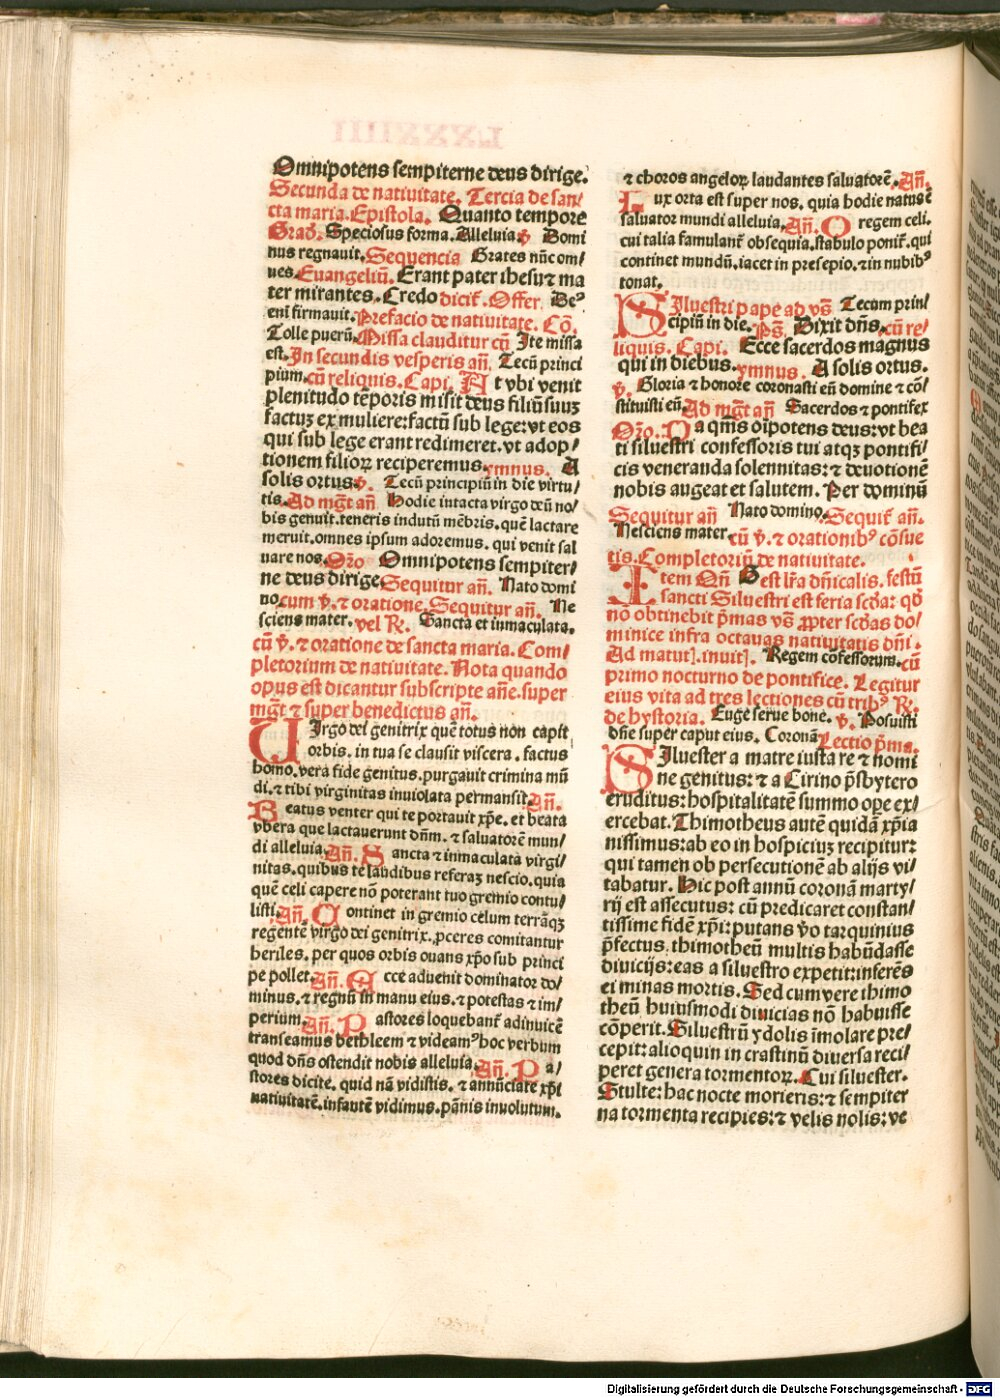 Omnipotens sempiterne deus dirige.
Secunda de natiuitate. Tercia de san/
cta maria. Epistola. Quanto tempore
Grad̄. Speciosus forma. Alleluia. v̄ Domi
nus regnauit. Sequencia Grates nūc om/
nes. Euangeliū. Erant pater ihesu ⁊ ma
ter mirantes. Credo dicit᷑. Offer. De⁹
eni firmauit. Prefacio de natiuitate. Cō.
Tolle puerū. Missa clauditur cū Ite missa
est. In secundis vesperis añ. Tecū princi
pium. cū reliquis. Capi. At vbi venit
plenitudo tēporis misit deus filiū suuꝫ
factuꝫ ex muliere: factū sub lege: vt eos
qui sub lege erant redimeret. vt adop/
tionem filioꝝ reciperemus. ymnus. A
solis ortus. v̄. Tecū principiū in die virtu/
tis. Ad mgt̄ añ Hodie intacta virgo deū no/
bis genuit. teneris indutū mēbris. quē lactare
meruit. omnes ipsum adoremus. qui venit sal
uare nos. Or̄o Omnipotens sempiter/
ne deus dirige. Sequitur añ. Nato domi
no. cum v̄. ⁊ oratione. Sequitur añ. Ne
sciens mater. vel R̄. Sancta et inmaculata.
cū v̄. ⁊ oratione de sancta maria. Com/
pletorium de natiuitate. Nota quando
opus est dicantur subscripte añe. super
mgt̄ ⁊ super benedictus añ.
VIrgo dei genitrix quē totus non capit
orbis. in tua se clausit viscera. factus
homo. vera fide genitus. purgauit crimina mū
di. ⁊ tibi virginitas inuiolata permansit. Añ.
Beatus venter qui te portauit xp̄e. et beata
vbera que lactauerunt dn̄m. ⁊ saluatorē mun/
di alleluia. Añ. Sancta ⁊ inmaculata virgi/
nitas. quibus te laudibus referaꝫ nescio. quia
quē celi capere nō poterant tuo gremio contu/
listi. Añ. Continet in gremio celum terrāqꝫ
regentē virgo dei genitrix. ꝓceres comitantur
heriles. per quos orbis ouans xp̄o sub princi
pe pollet. Añ. Ecce aduenit dominator do/
minus. ⁊ regnū in manu eius. ⁊ potestas ⁊ im/
perium. Añ. Pastores loquebant᷑ adinuicē
transeamus bethleem ⁊ videam⁹ hoc verbum
quod dn̄s ostendit nobis alleluia. Añ. Pa/
stores dicite. quid nā vidistis. ⁊ annūciate xp̄i
natiuitatē. infantē vidimus. pānis inuolutum.
⁊ choros angeloꝝ laudantes saluatorē. Añ.
Lux orta est super nos. quia hodie natus ē
saluator mundi alleluia. Añ. O regem celi.
cui talia famulant᷑ obsequia. stabulo ponit᷑. qui
continet mundū. iacet in presepio. ⁊ in nubib⁹
tonat.
SIluestri pape ad vs̄ Tecum prin/
cipiū in die. Ps̄. Dixit dn̄s. cū re/
liquis. Capi. Ecce sacerdos magnus
qui in diebus. ymnus. A solis ortus.
v̄. Gloria ⁊ honore coronasti eū domine ⁊ cō/
stituisti eū. Ad mgt̄ añ Sacerdos ⁊ pontifex
Or̄o. Da qm̄s oīpotens deus: vt bea
ti siluestri confessoris tui atqꝫ pontifi/
cis veneranda solennitas: ⁊ deuotionē
nobis augeat et salutem. Per dominū
Sequitur añ Nato domino. Sequit᷑ añ.
Nesciens mater. cū v̄. ⁊ orationib⁹ cōsue
tis. Completoriū de natiuitate.
Item Qn̄ G est lr̄a dn̄icalis. festū
sancti Siluestri est feria scd̄a: qd̄
nō obtinebit p̄mas vs̄ ꝓpter scd̄as do/
minice infra octauas natiuitatis dn̄i.
Ad matut]. inuit]. Regem cōfessorum. cū
primo nocturno de pontifice. Legitur
eius vita ad tres lectiones cū trib⁹ R̄.
de hystoria. Euge serue bone. v̄. Posuisti
dn̄e super caput eius. Coronā Lectio p̄ma.
SIluester a matre iusta re ⁊ nomi
ne genitus: ⁊ a Cirino p̄sbytero
eruditus: hospitalitatē summo ope ex/
ercebat. Thimotheus autē quidā xp̄ia
nissimus: ab eo in hospiciuꝫ recipitur:
qui tamen ob persecutionē ab alijs vi/
tabatur. Hic post annū coronā marty/
rij est assecutus: cū predicaret constan/
tissime fidē xp̄i: putans v̄o tarquinius
p̄fectus. thimotheū multis habūdasse
diuicijs: eas a siluestro expetit: inferēs
ei minas mortis. Sed cum vere thimo
theū huiusmodi diuicias nō habuisse
cōperit. Siluestrū ydolis īmolare pre/
cepit: alioquin in crastinū diuersa reci/
peret genera tormentoꝝ. Cui siluester.
Stulte: hac nocte morieris: ⁊ sempiter
na tormenta recipies: ⁊ velis nolis: ve
Digitalisierung gefördert durch die Deutsche Forschungsgemeinschaft - DFG